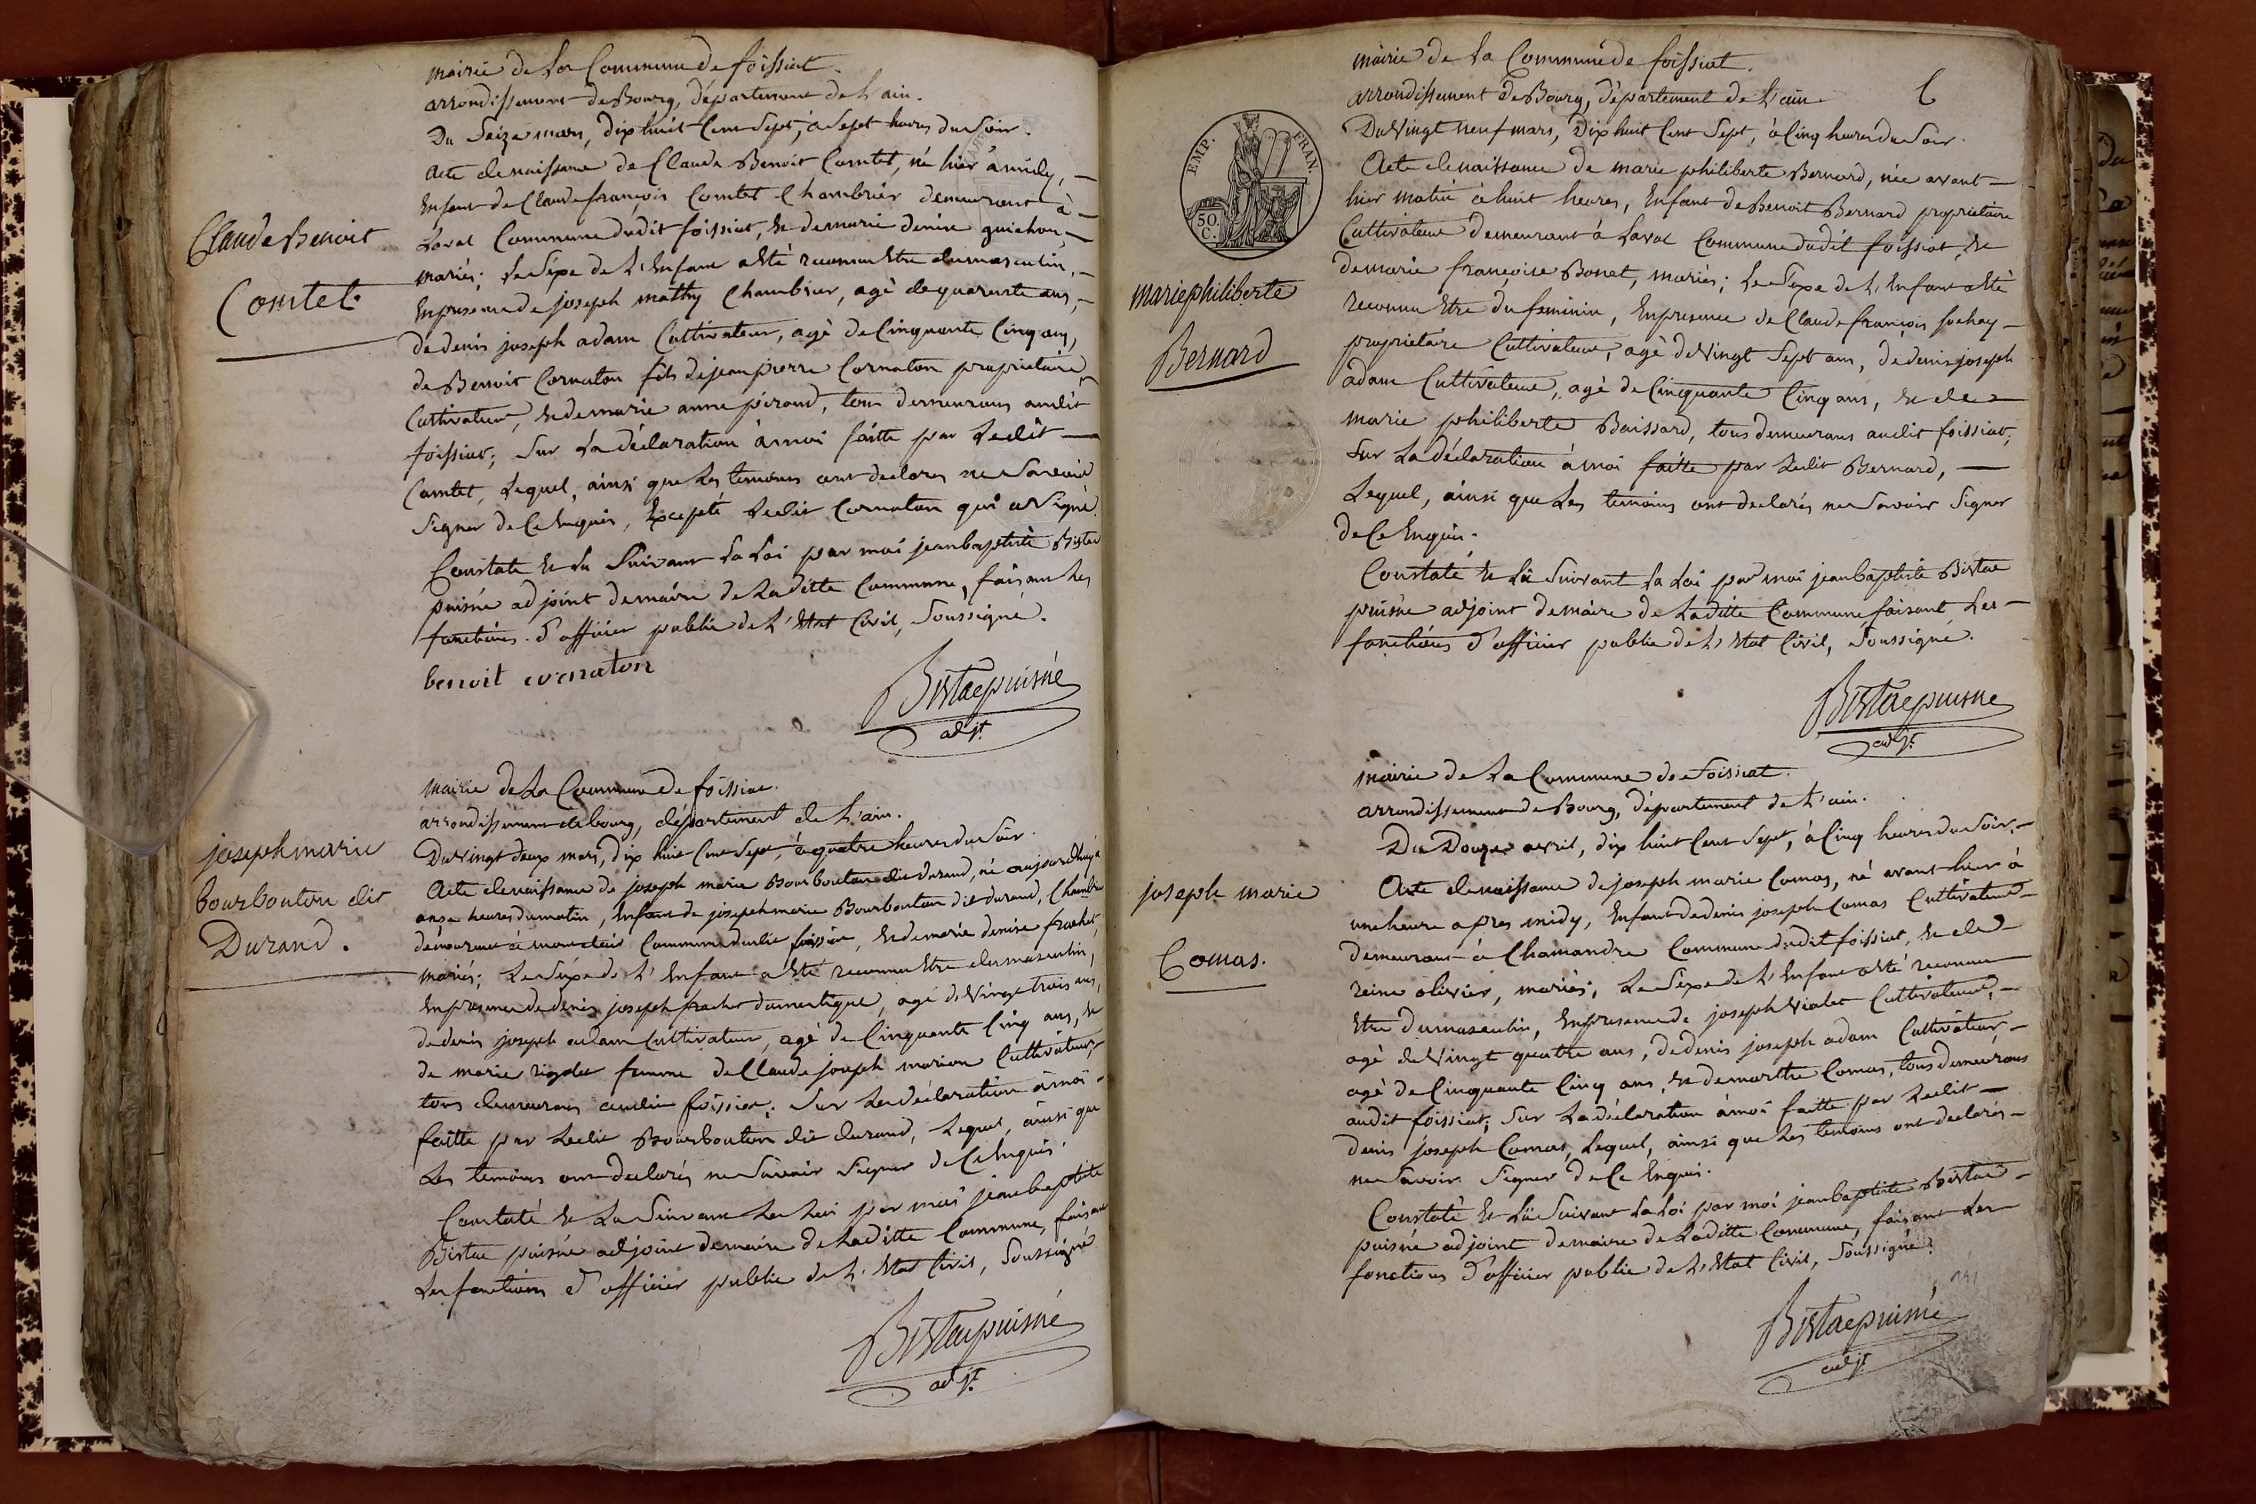 mairie de la Commune de foissiat.
arrondissement de Bourg, département de L'ain.
Du Seize mars, dix huit Cent Sept, à Sept heures du Soir.
Acte de naissance de Claude Benoit Comtet, né hier à midy, —
Enfant de Claude françois Comtet Chambrier demeurant à —
Laval Commune dudit foissiat, et de marie denise guichon, —
mariés; Le Sexe de L'Enfant a Eté reconnu Etre du masculin, —
En presence de joseph mathy Chambrier, agé de quarante ans, —
de denis joseph adam Cultivateur, agé de Cinquante Cinq ans,
de Benoit Cornaton fils de jean pierre Cornaton propriétaire
Cultivateur, et de marie anne péraud, tous demeurans audit
foissiat; Sur La déclaration à moi faitte par Ledit —
Comtet, Lequel, ainsi que Les temoins ont declarés ne Savoir
Signer de Ce Enquis, Excepté Ledit Cornaton qui a Signé.
Constaté et Lu Suivant La Loi par moi jean baptiste Bistac
puisné adjoint de maire de Laditte Commune, faisant Les
fonctions d'officier public de L'Etat Civil, Soussigné.
benoit cornaton
Bistac puisné
adjt.
Claude Benoit
Comtet.
mairie de La Commune de foissiat.
arrondissement de bourg, département de L'ain.
Du Vingt deux mars, dix huit Cent Sept, à quatre heures du Soir.
Acte de naissance de joseph marie Bourbouton dit durand, né aujourdhuy à
onze heures du matin, Enfant de joseph marie Bourbouton dit durand, Chambrier
demeurant à Commune dudit foissiat, et de marie denise frachet,
mariés; Le Sexe de L'Enfant a Eté reconnu Etre du masculin,
En presence de denis joseph frachet domestique, agé de Vingt trois ans,
de denis joseph adam Cultivateur, agé de Cinquante Cinq ans, et
de marie rigolet femme de Claude joseph marion Cultivateur,
tous demeurans audit foissiat; Sur La déclaration à moi —
faitte par Ledit Bourbouton dit durand, Lequel, ainsi que
Les temoins ont declarés ne Savoir Signer de Ce Enquis.
Constaté et Lu Suivant La Loi par moi jean baptiste
Bistac puisné adjoint de maire de Laditte Commune, faisant
Les fonctions d'officier public de L'Etat Civil, Soussigné
Bistac puisné
adjt.
joseph marie
bourbouton dit
Durand.
mairie de La Commune de foissiat.
arrondissement de Bourg, département de L'ain.
Du Vingt neuf mars, Dix huit Cent Sept, à Cinq heures du Soir.
Acte de naissance de marie philiberte Bernard, née avant —
hier matin à huit heures, Enfant de Benoit Bernard propriétaire
Cultivateur demeurant à Laval Commune dudit foissiat, et
de marie françoise Bonet, mariés; Le Sexe de L'Enfant a Eté
reconnu Etre du feminin, En presence de Claude françois —
propriétaire Cultivateur, agé de Vingt Sept ans, de denis joseph
adam Cultivateur, agé de Cinquante Cinq ans, et de —
marie philiberte Boissard, tous demeurans audit foissiat;
Sur La déclaration à moi faitte par Ledit Bernard, —
Lequel, ainsi que Les temoins ont declarés ne Savoir Signer
de Ce Enquis.
Constaté et Lu Suivant La Loi par moi jean baptiste Bistac
puisné adjoint de maire de Laditte Commune faisant Les —
fonctions d'officier public de L'Etat Civil, Soussigné.
Bistac puisné
adjt.
EMP. FRAN.
50 C.
marie philiberte
Bernard
mairie de La Commune de foissiat.
arrondissement de Bourg, département de L'ain.
Du Douze avril, dix huit Cent Sept, à Cinq heures du Soir. —
Acte de naissance de joseph marie Comas, né avant hier à
une heure apres midy, Enfant de denis joseph Comas Cultivateur
demeurant à Chamandre Commune dudit foissiat, et de
reine olivier, mariés; Le Sexe de L'Enfant a Eté reconnu
Etre du masculin, En presence de joseph Vialet Cultivateur, —
agé de Vingt quatre ans, de denis joseph adam Cultivateur, —
agé de Cinquante Cinq ans, et de marthe Comas, tous demeurans
audit foissiat; Sur La déclaration à moi faitte par Ledit —
denis joseph Comas, Lequel, ainsi que Les temoins ont declarés —
ne Savoir Signer de Ce Enquis.
Constaté et Lu Suivant La Loi par moi jean baptiste Bistac —
puisné adjoint de maire de Laditte Commune, faisant Les
fonctions d'officier public de L'Etat Civil, Soussigné.
Bistac puisné
adjt.
joseph marie
Comas.